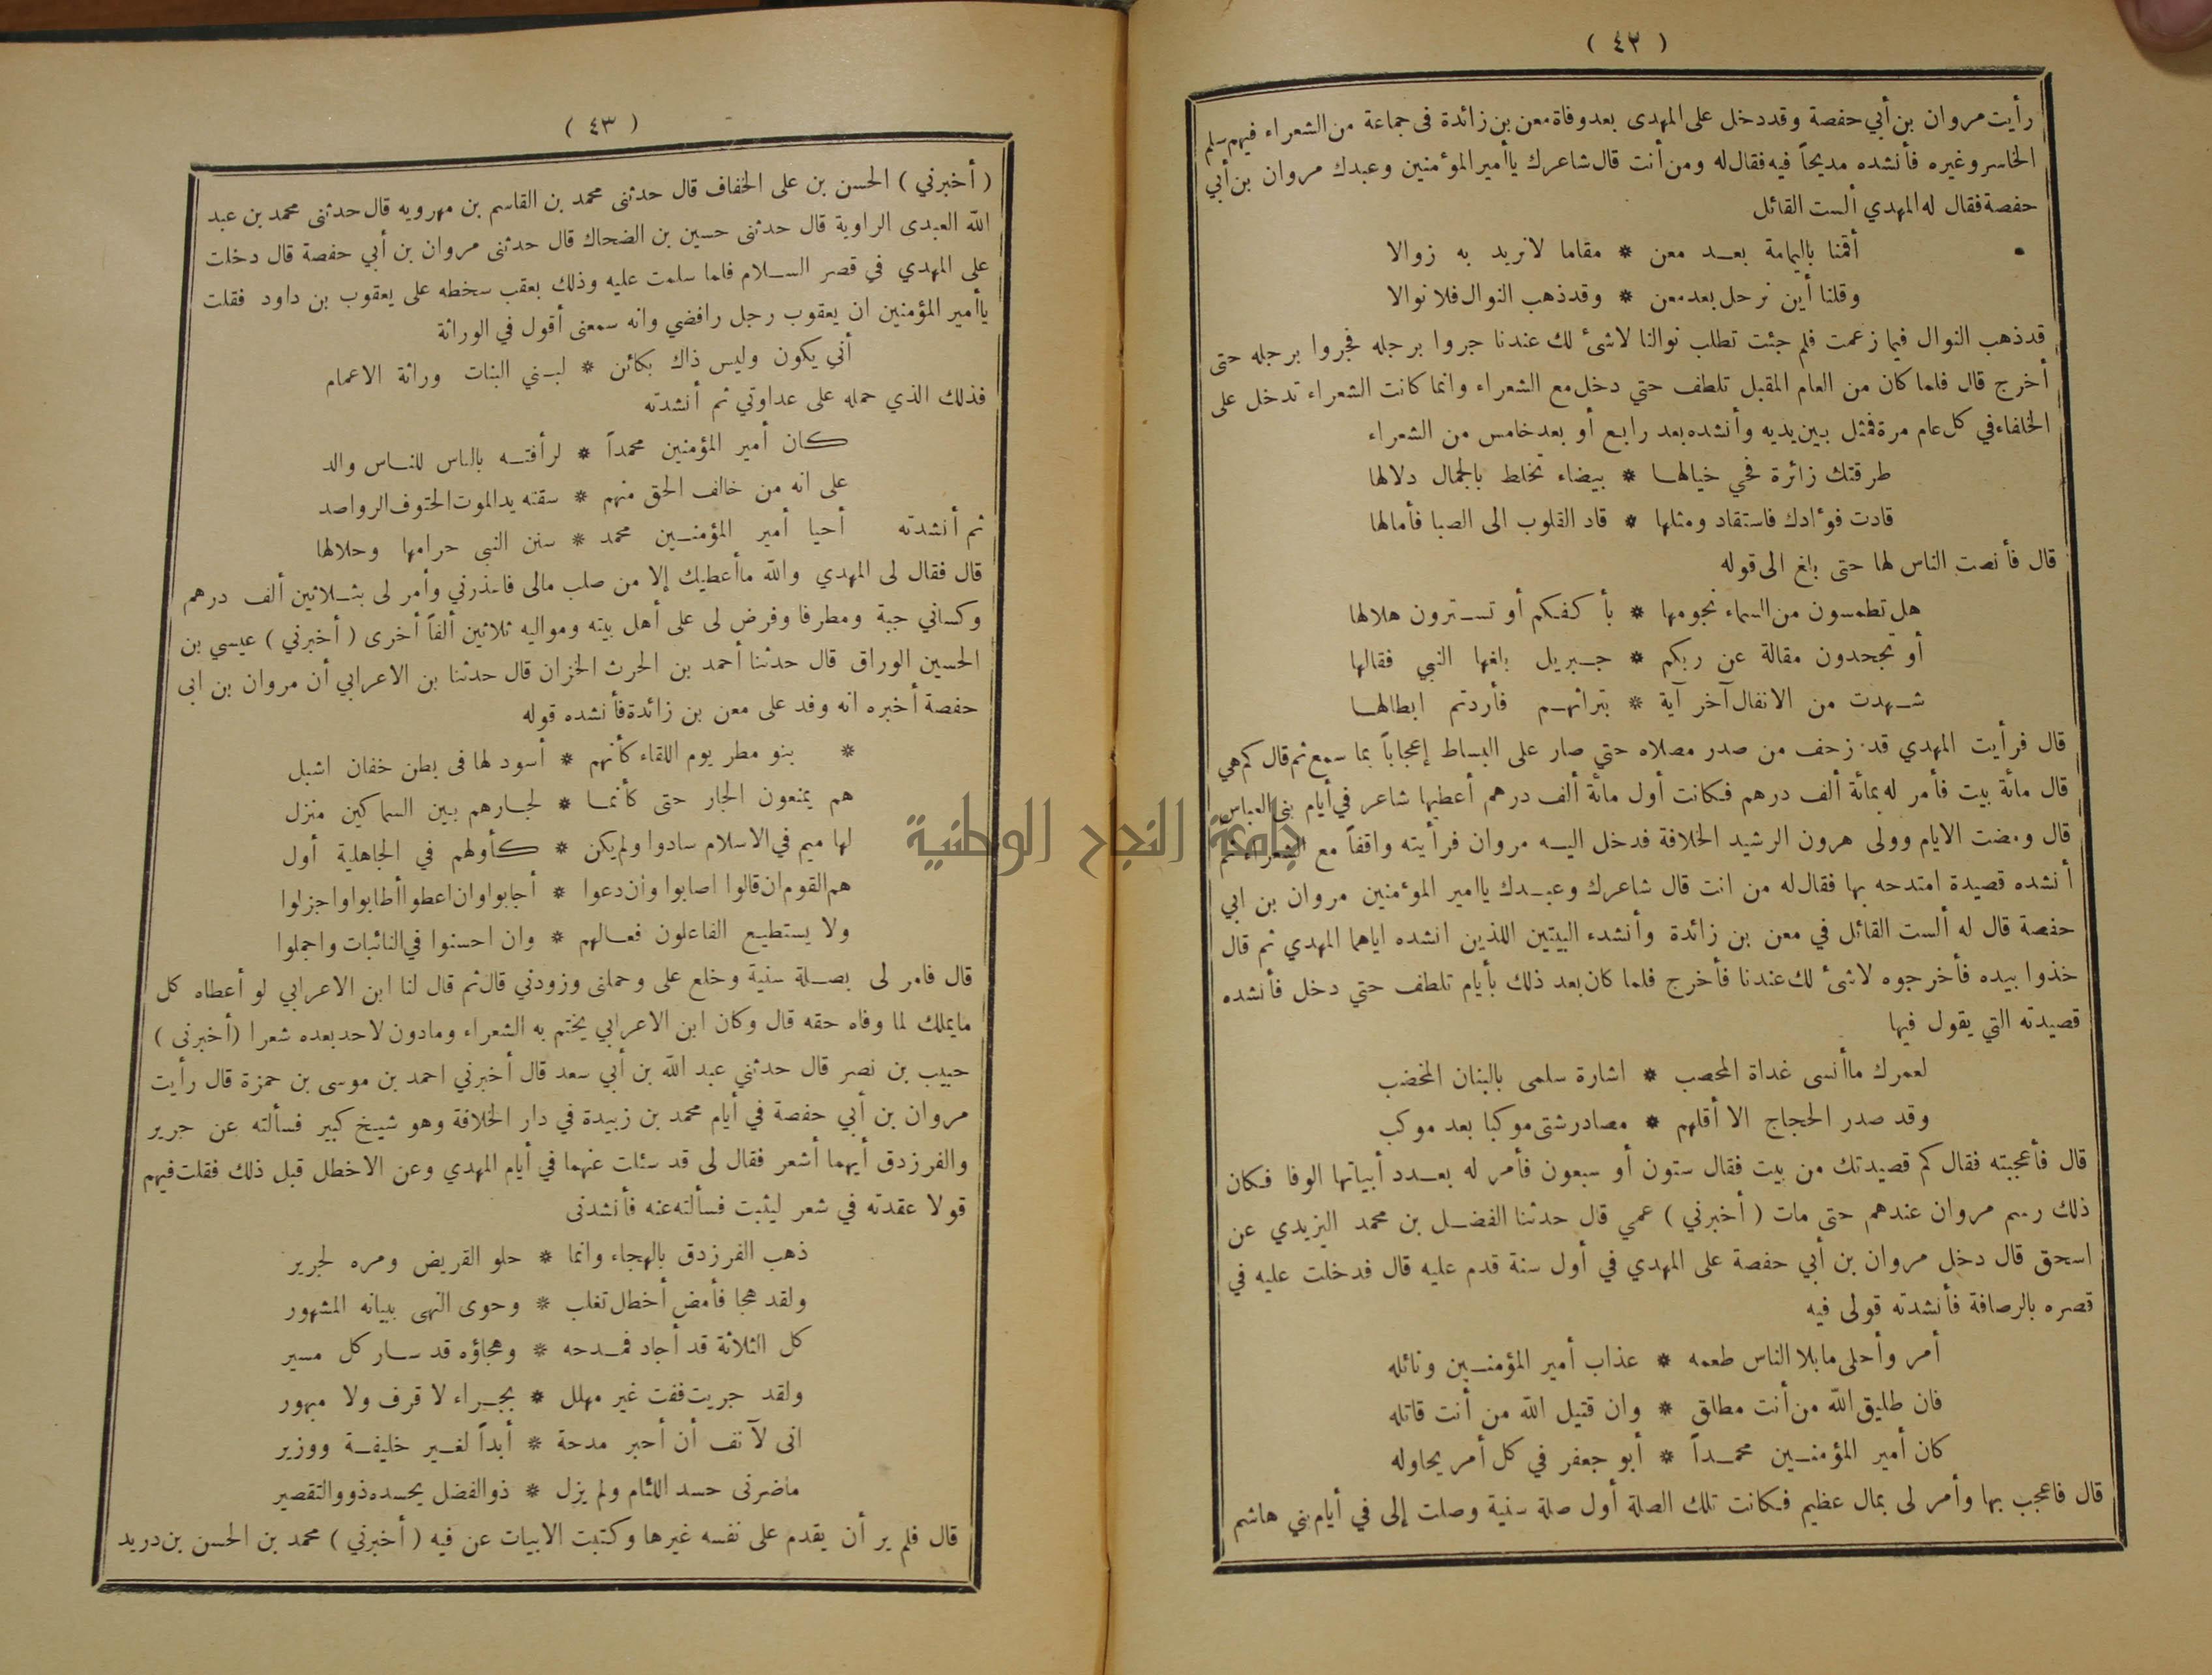 ( ٤٢ )
رأيت مروان بن أبي حفصة وقد دخل على المهدى بعد وفاة معن بن زائدة فى جماعة من الشعراء فيهم سلم
الخاسر وغيره فأنشده مديحاً فيه فقال له ومن أنت قال شاعرك ياأمير المؤمنين وعبدك مروان بن أبي
حفصة فقال له المهدي ألست القائل
أقمنا باليمامة بعد معن * مقاما لانريد به زوالا
وقلنا أين نرحل بعد معن * وقد ذهب النوال فلا نوالا
قد ذهب النوال فيما زعمت فلم جئت تطلب نوالنا لاشئ لك عندنا جروا برجله فجروا برجله حتى
أخرج قال فلما كان من العام المقبل تلطف حتي دخل مع الشعراء وانما كانت الشعراء تدخل على
الخلفاء في كل عام مرة فمثل بين يديه وأنشده بعد رابع أو بعد خامس من الشعراء
طرقتك زائرة فحي خيالها * بيضاء تخلط بالجمال دلالها
قادت فؤادك فاستقاد ومثلها * قاد القلوب الى الصبا فأمالها
قال فأنصت الناس لها حتى بلغ الى قوله
هل تطمسون من السماء نجومها * بأكفكم أو تسترون هلالها
أو تجحدون مقالة عن ربكم * جبريل بلغها النبي فقالها
شهدت من الانفال آخر آية * بتراثهم فأردتم ابطالها
قال فرأيت المهدي قد زحف من صدر مصلاه حتي صار على البساط إعجاباً بما سمع ثم قال كم هي
قال مائة بيت فأمر له بمائة ألف درهم فكانت أول مائة ألف درهم أعطيها شاعر في أيام بنى العباس
قال ومضت الايام وولى هرون الرشيد الخلافة فدخل اليه مروان فرأيته واقفاً مع الشعراء ثم
أنشده قصيدة امتدحه بها فقال له من انت قال شاعرك وعبدك ياامير المؤمنين مروان بن ابي
حفصة قال له ألست القائل في معن بن زائدة وأنشده البيتين اللذين انشده اياهما المهدي ثم قال
خذوا بيده فأخرجوه لاشئ لك عندنا فأخرج فلما كان بعد ذلك بأيام تلطف حتي دخل فأنشده
قصيدته التي يقول فيها
لعمرك ماأنسى غداة المحصب * اشارة سلمى بالبنان المخضب
وقد صدر الحجاج الا أقلهم * مصادر شتى موكبا بعد موكب
قال فأعجبته فقال كم قصيدتك من بيت فقال ستون أو سبعون فأمر له بعدد أبياتها الوفا فكان
ذلك رسم مروان عندهم حتى مات ( أخبرني ) عمي قال حدثنا الفضل بن محمد اليزيدي عن
اسحق قال دخل مروان بن أبي حفصة على المهدي في أول سنة قدم عليه قال فدخلت عليه في
قصره بالرصافة فأنشدته قولى فيه
أمر وأحلى مابلا الناس طعمه * عذاب أمير المؤمنين ونائله
فان طليق الله من أنت مطلق * وان قتيل الله من أنت قاتله
كان أمير المؤمنين محمداً * أبو جعفر في كل أمر يحاوله
قال فاعجب بها وأمر لى بمال عظيم فكانت تلك الصلة أول صلة سنية وصلت إلى في أيام بني هاشم
( ٤٣ )
( أخبرني ) الحسن بن على الخفاف قال حدثنى محمد بن القاسم بن مهرويه قال حدثنى محمد بن عبد
الله العبدى الراوية قال حدثنى حسين بن الضحاك قال حدثنى مروان بن أبي حفصة قال دخلت
على المهدي في قصر السلام فلما سلمت عليه وذلك بعقب سخطه على يعقوب بن داود فقلت
ياأمير المؤمنين ان يعقوب رجل رافضي وانه سمعنى أقول في الوراثة
أني يكون وليس ذاك بكائن * لبني البنات وراثة الاعمام
فذلك الذي حمله على عداوتي ثم أنشدته
كان أمير المؤمنين محمداً * لرأفته بالناس للناس والد
على انه من خالف الحق منهم * سقته يد الموت الحتوف الرواصد
ثم أنشدته أحيا أمير المؤمنين محمد * سنن النبى حرامها وحلالها
قال فقال لى المهدي والله ماأعطيك إلا من صلب مالى فاعذرني وأمر لى بثلاثين ألف درهم
وكساني جبة ومطرفا وفرض لى على أهل بيته ومواليه ثلاثين ألفاً أخرى ( أخبرني ) عيسي بن
الحسين الوراق قال حدثنا أحمد بن الحرث الخزان قال حدثنا بن الاعرابي أن مروان بن ابى
حفصة أخبره انه وفد على معن بن زائدة فأنشده قوله
* بنو مطر يوم اللقاء كأنهم * أسود لها فى بطن خفان اشبل
هم يمنعون الجار حتى كأنما * لجارهم بين السماكين منزل
لهاميم في الاسلام سادوا ولم يكن * كأولهم في الجاهلية أول
هم القوم ان قالوا اصابوا وان دعوا * أجابوا وان اعطوا أطابوا واجزلوا
ولا يستطيع الفاعلون فعالهم * وان احسنوا في النائبات واجملوا
قال فامر لى بصلة سنية وخلع على وحملنى وزودني قال ثم قال لنا ابن الاعرابي لو أعطاه كل
مايملك لما وفاه حقه قال وكان ابن الاعرابي يختم به الشعراء ومادون لاحد بعده شعرا (أخبرنى )
حبيب بن نصر قال حدثني عبد الله بن أبي سعد قال أخبرني احمد بن موسى بن حمزة قال رأيت
مروان بن أبي حفصة في أيام محمد بن زبيدة في دار الخلافة وهو شيخ كبير فسألته عن جرير
والفرزدق أيهما أشعر فقال لى قد سئلت عنهما في أيام المهدي وعن الاخطل قبل ذلك فقلت فيهم
قولا عقدته في شعر ليثبت فسألته عنه فأنشدنى
ذهب الفرزدق بالهجاء وانما * حلو القريض ومره لجرير
ولقد هجا فأمض أخطل تغلب * وحوى النهى ببيانه المشهور
كل الثلاثة قد أجاد فمدحه * وهجاؤه قد سار كل مسير
ولقد جريت ففت غير مهلل * بجراء لا قرف ولا مبهور
انى لآنف أن أحبر مدحة * أبداً لغير خليفة ووزير
ماضرنى حسد اللئام ولم يزل * ذو الفضل يحسده ذوو التقصير
قال فلم ير أن يقدم على نفسه غيرها وكتبت الابيات عن فيه ( أخبرني ) محمد بن الحسن بن دريد
جامعة النجاح الوطنية